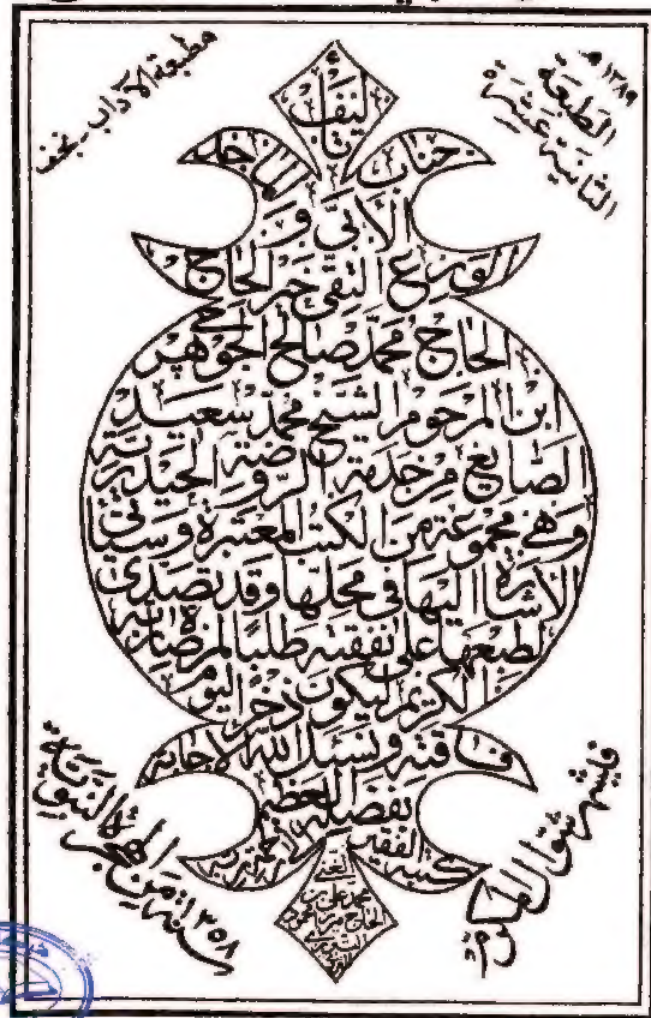 ١٣٨٩ هـ
الطبعة
الثانية عشرة
مطبعة الآداب - نجف
تأليف
جناب
الأبي و
الورع التقي خير الحاج
الحاج محمد صالح الجوهرجي
ابن المرحوم الشيخ محمد سعيد
الصايغ من خدمة الروضة الحيدرية
وهي مجموعة من الكتب المعتبرة وسيأتي
الأشارة اليها في محلها وقد تصدى
لطبعها على نفقته طلبا لمرضات ربه
الكريم ليكون ذخرا ليوم
فاقته ونسئل الله الإجابة
بفضله العظيم
كتبه الفقير
محمد علي بن
الحاج
في شهر شوال المكرم
سنة ١٣٥٨ من الهجرة النبوية